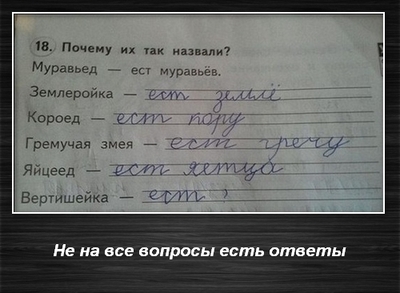 18. Почему их так назвали?
Муравьед — ест муравьёв.
Землеройка — ест землё
Короед — ест кору
Гремучая змея — ест гречу
Яйцеед — ест яетца
Вертишейка — ест
Не на все вопросы есть ответы